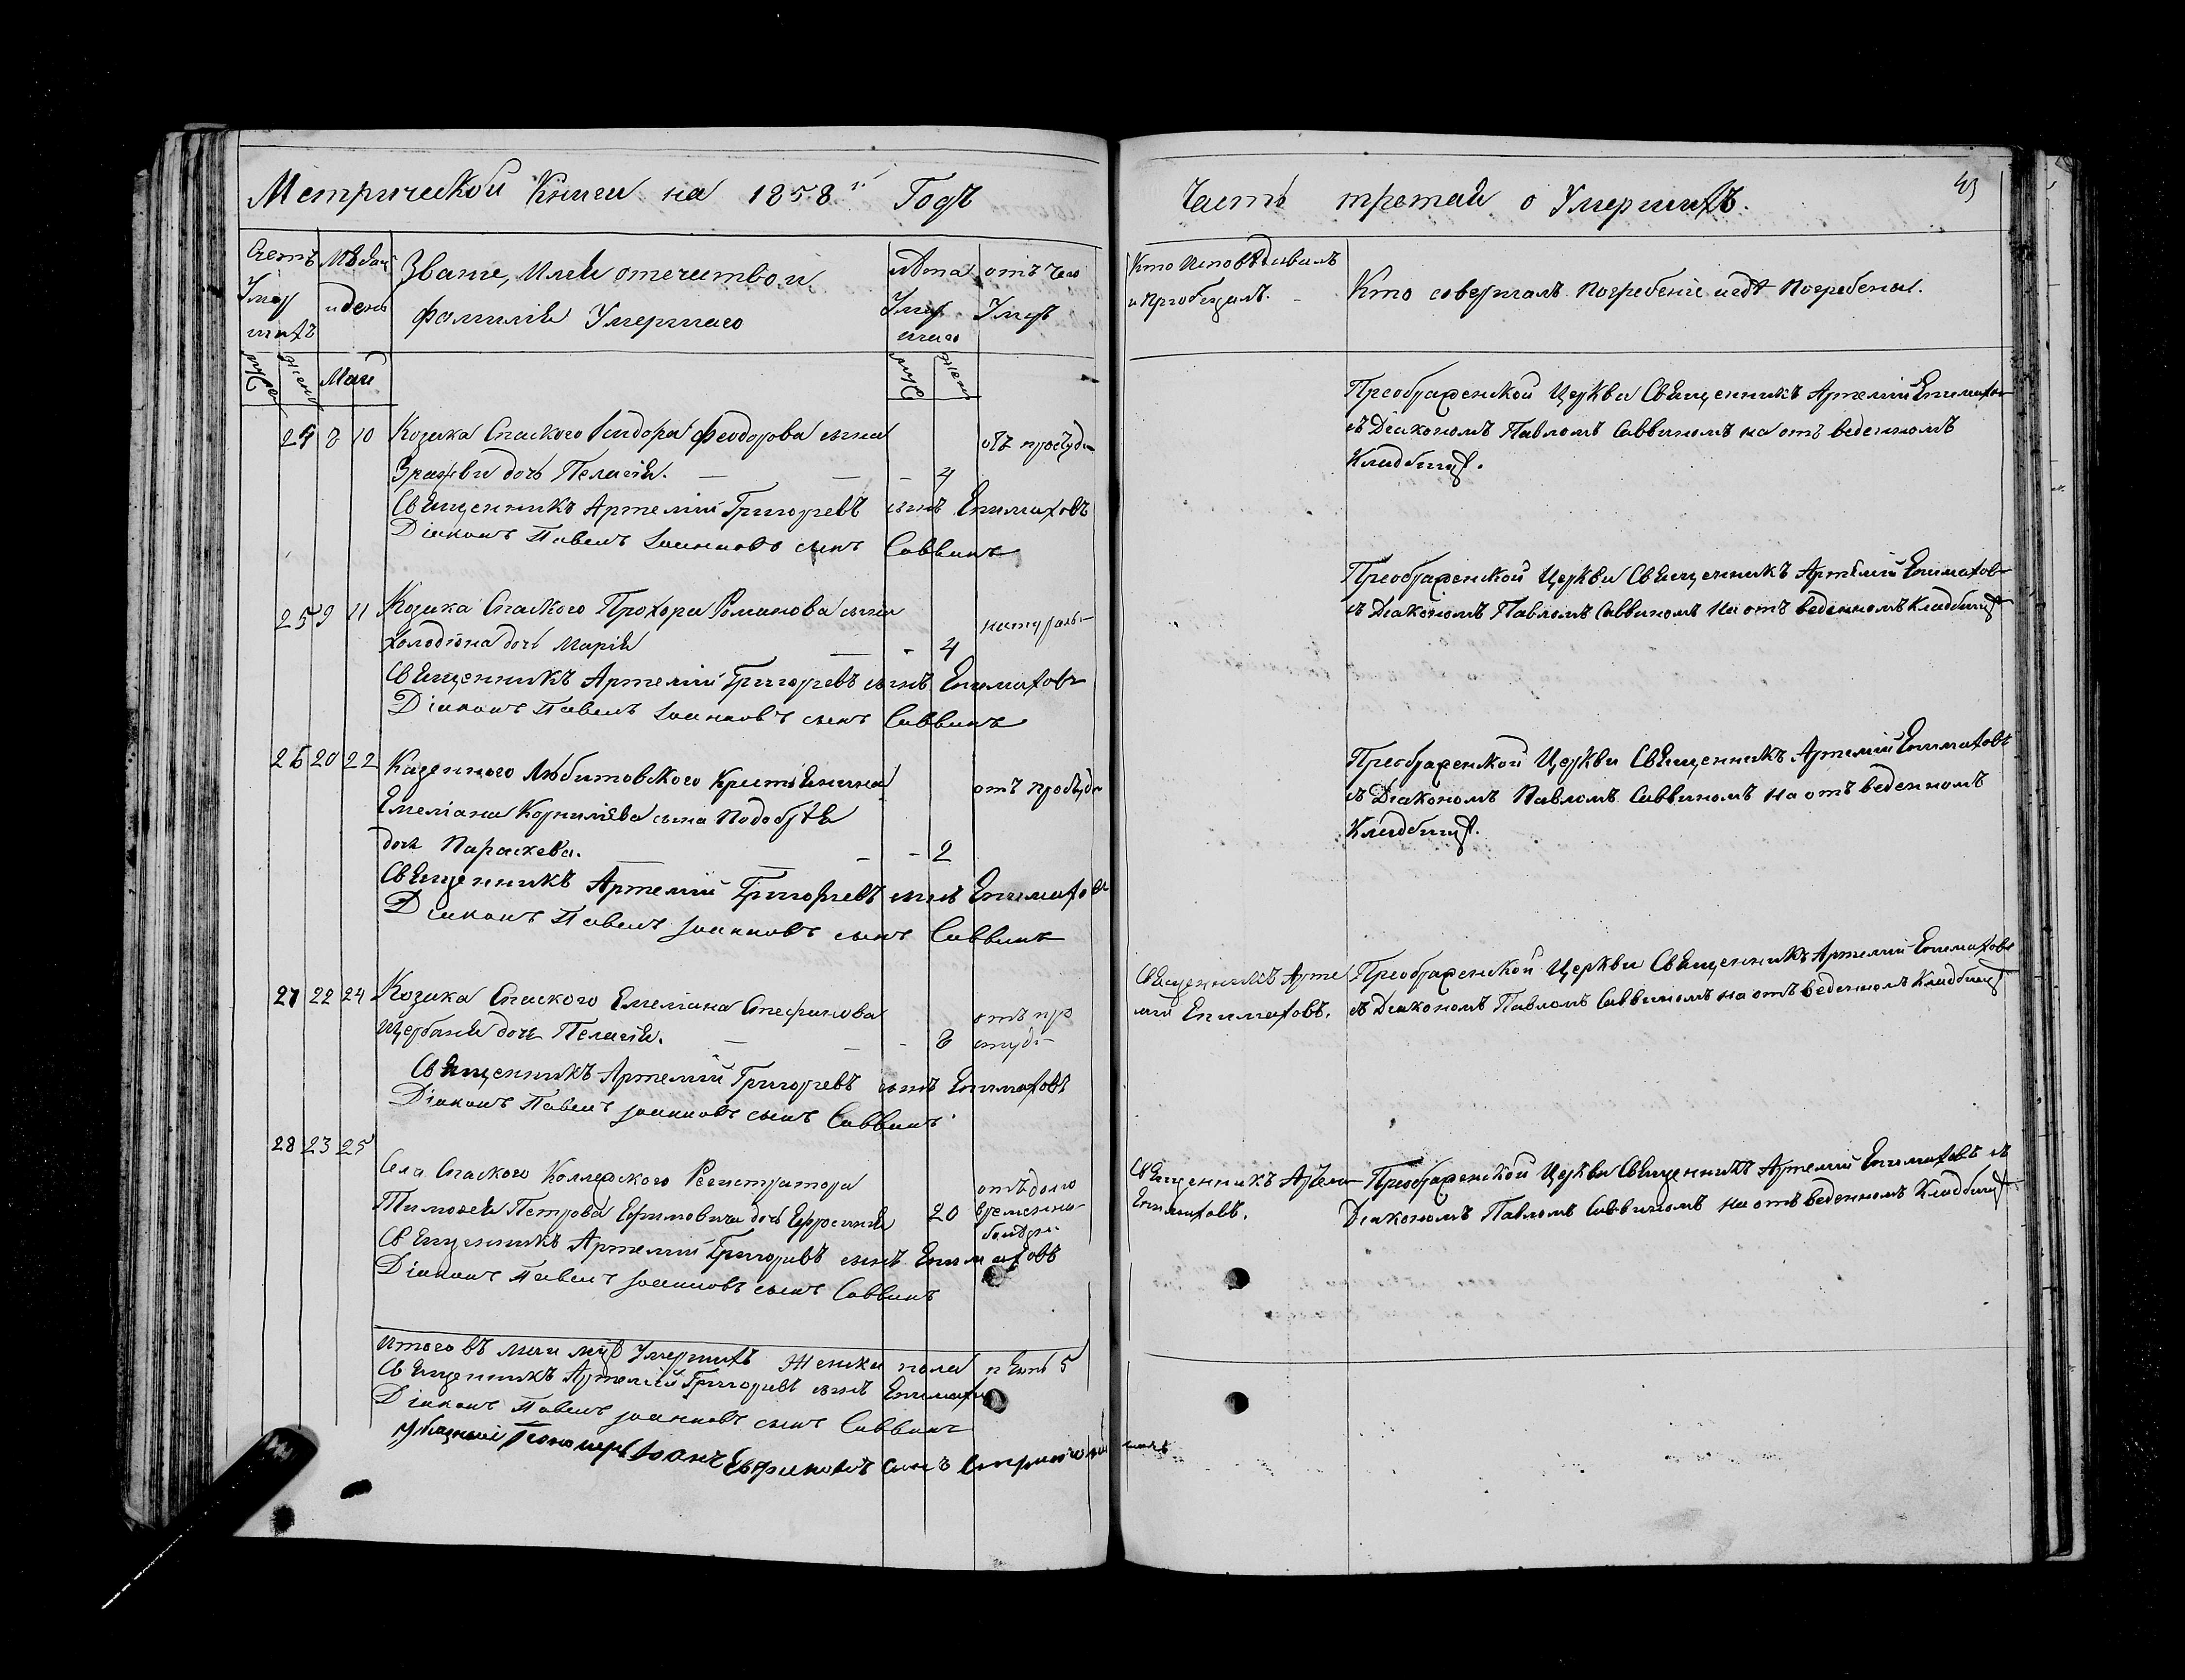 Метрической Книги на 1858й Годъ
Счетъ Умер шихъ
Мѣсяцъ и день
Званіе, Имя отечество и
фамилія Умершаго
лѣта Умер шаго
отъ чего Умеръ
муж жен
Маій
муж жен
24 8 10 Козака Спаского Сидора Феодорова сына
отъ простуды
дочь Пелагія. 4
Священникъ Артемій Григорьевъ сынъ Епимаховъ
Діаконъ Павелъ Іоанновъ сынъ Саввинъ
25 9 11 Козака Спаского Прохора Романова сына
натураль
Холодіона дочь Марія 4
Священникъ Артемій Григорьевъ сынъ Епимаховъ
Діаконъ Павелъ Іоанновъ сынъ Саввинъ
26 20 22 Казенного Любитовского Крестьянина
отъ простуды
Емеліана Корниліева сына
дочь Параскева. 2
Священникъ Артемій Григорьевъ сынъ Епимаховъ
Діаконъ Павелъ Іоанновъ сынъ Саввинъ
27 22 24 Козака Спаского Емеліана Стефанова
отъ про
Щербаня дочь Пелагія. 8 студы
Священникъ Артемій Григорьевъ сынъ Епимаховъ
Діаконъ Павелъ Іоанновъ сынъ Саввинъ
28 23 25
Села Спаского Коллежского Регистратора
отъ долго
Тимофея Петрова Ефимовича дочь Ефросинія 20 временна
Священникъ Артемій Григорьевъ сынъ Епимаховъ
Діаконъ Павелъ Іоанновъ сынъ Саввинъ
Итого въ маіи мцѣ Умершихъ Женска пола пять 5
Священникъ Артемій Григорьевъ сынъ Епимахов
Діаконъ Павелъ Іоанновъ сынъ Саввинъ
Пономарь Іоанъ сынъ
Часть третая о Умершихъ.
Кто Исповѣдывалъ
и Пріобщалъ.
Кто совершалъ Погребеніе и гдѣ Погребены.
Преображенской Церкви Священникъ Артемій Епимахов
съ Діакономъ Павломъ Саввиномъ на отъ веденномъ
Кладбищѣ.
Преображенской Церкви Священникъ Артемій Епимахов
съ Діакономъ Павломъ Саввиномъ на отъ веденномъ Кладбищѣ
Преображенской Церкви Священникъ Артемій Епимаховъ
съ Діакономъ Павломъ Саввиномъ на отъ веденномъ
Кладбищѣ.
Священникъ Арте
мій Епимаховъ.
Преображенской Церкви Священникъ Артемій Епимаховъ
съ Діакономъ Павломъ Саввиномъ на отъ веденномъ Кладбищѣ
Священникъ Артем
Епимаховъ.
Преображенской Церкви Священникъ Артемій Епимаховъ съ
Діакономъ Павломъ Саввиномъ на отъ веденномъ Кладбищѣ